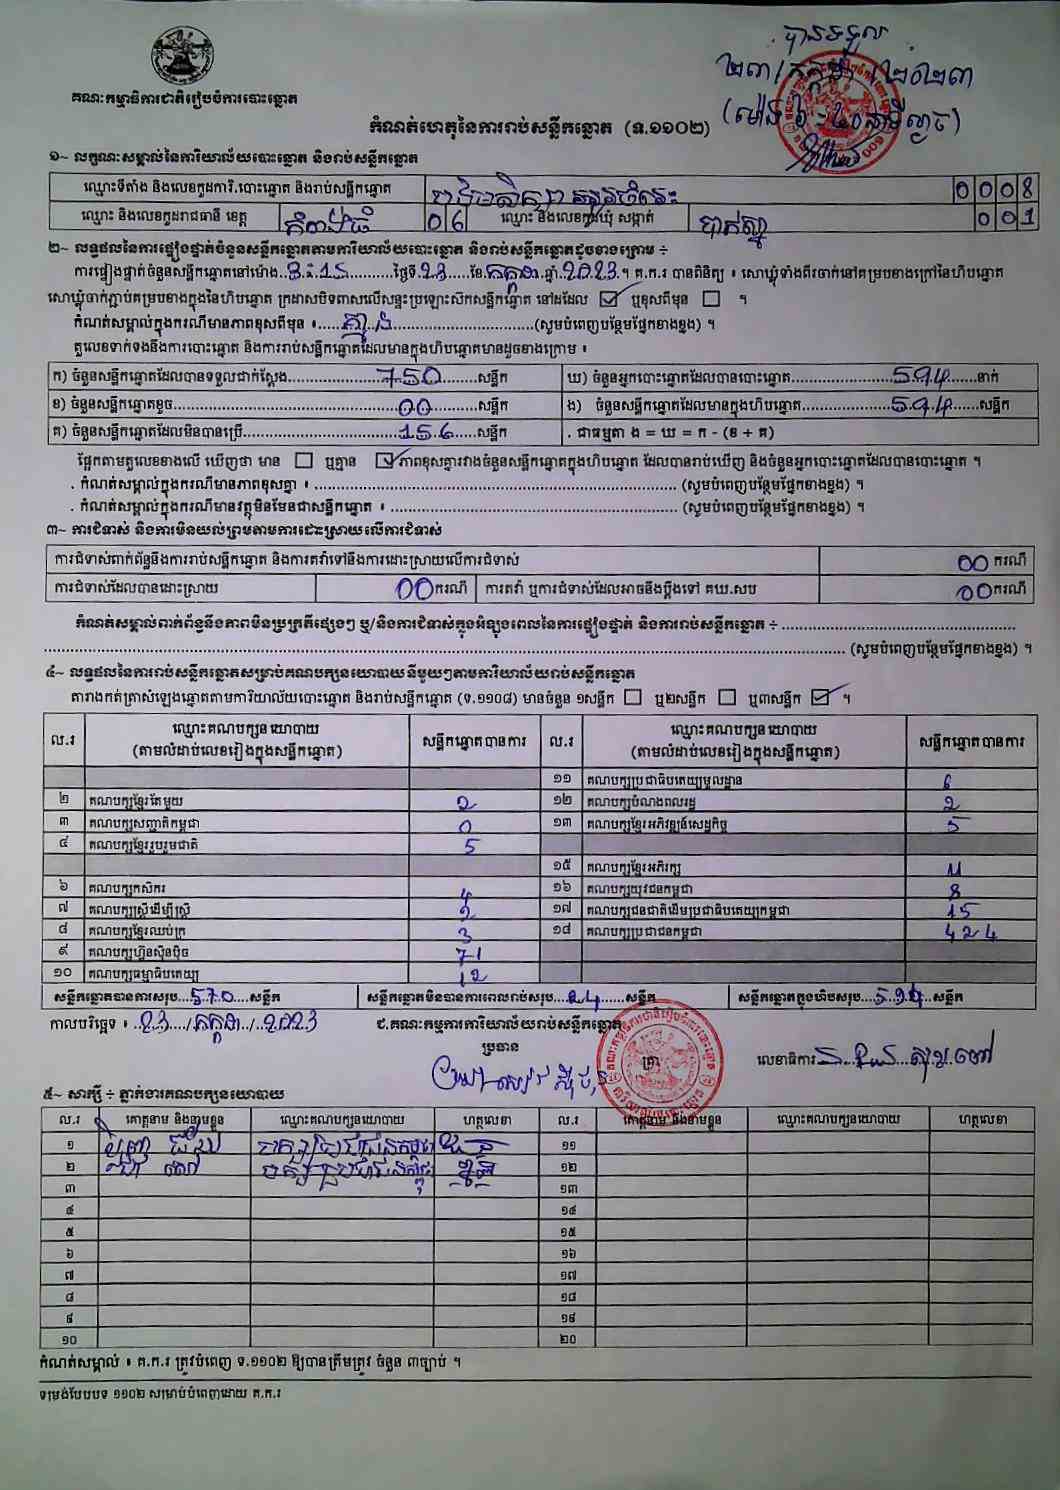 បានទទួល
២៣/កក្កដា/២០២៣
គណៈកម្មាធិការជាតិរៀបចំការបោះឆ្នោត
កំណត់ហេតុនៃការរាប់សន្លឹកឆ្នោត (ទ.១១០២)
១~ លក្ខណៈសម្គាល់នៃការិយាល័យបោះឆ្នោត និងរាប់សន្លឹកឆ្នោត
ឈ្មោះទីតាំង និងលេខកូដការិ.បោះឆ្នោត និងរាប់សន្លឹកឆ្នោត 0 0 0 8
ឈ្មោះ និងលេខកូដរាជធានី ខេត្ត កំពង់ធំ 0 6 ឈ្មោះ និងលេខកូដឃុំ សង្កាត់ 0 0 1
២~ លទ្ធផលនៃការផ្ទៀងផ្ទាត់ចំនួនសន្លឹកឆ្នោតតាមការិយាល័យបោះឆ្នោត និងរាប់សន្លឹកឆ្នោតដូចខាងក្រោម ÷
ការផ្ទៀងផ្ទាត់ចំនួនសន្លឹកឆ្នោតនៅម៉ោង 3:15 ថ្ងៃទី 23 ខែ កក្កដា ឆ្នាំ 2023 ។ គ.ក.រ បានពិនិត្យ ៖ សោឃ្លុំទាំងពីរចាក់នៅគម្របខាងក្រៅនៃហិបឆ្នោត
សោឃ្លុំចាក់ភ្ជាប់គម្របខាងក្នុងនៃហិបឆ្នោត ក្រដាសបិទពាសលើសន្ទះប្រឡោះសឹកសន្លឹកឆ្នោត នៅដដែល ☑ ឬខុសពីមុន ☐ ។
កំណត់សម្គាល់ក្នុងករណីមានភាពខុសពីមុន ៖ គ្មាន (សូមបំពេញបន្ថែមផ្នែកខាងខ្នង) ។
តួលេខទាក់ទងនឹងការបោះឆ្នោត និងការរាប់សន្លឹកឆ្នោតដែលមានក្នុងហិបឆ្នោតមានដូចខាងក្រោម ៖
ក) ចំនួនសន្លឹកឆ្នោតដែលបានទទួលជាក់ស្តែង 750 សន្លឹក ឃ) ចំនួនអ្នកបោះឆ្នោតដែលបានបោះឆ្នោត 594 នាក់
ខ) ចំនួនសន្លឹកឆ្នោតខូច 00 សន្លឹក ង) ចំនួនសន្លឹកឆ្នោតដែលមានក្នុងហិបឆ្នោត 594 សន្លឹក
គ) ចំនួនសន្លឹកឆ្នោតដែលមិនបានប្រើ 156 សន្លឹក . ជាធម្មតា ង = ឃ = ក - (ខ + គ)
ផ្អែកតាមតួលេខខាងលើ ឃើញថា មាន ☐ ឬគ្មាន ☑ ភាពខុសគ្នារវាងចំនួនសន្លឹកឆ្នោតក្នុងហិបឆ្នោត ដែលបានរាប់ឃើញ និងចំនួនអ្នកបោះឆ្នោតដែលបានបោះឆ្នោត ។
. កំណត់សម្គាល់ក្នុងករណីមានភាពខុសគ្នា ៖ (សូមបំពេញបន្ថែមផ្នែកខាងខ្នង) ។
. កំណត់សម្គាល់ក្នុងករណីមានវត្ថុមិនមែនជាសន្លឹកឆ្នោត ៖ (សូមបំពេញបន្ថែមផ្នែកខាងខ្នង) ។
៣~ ការជំទាស់ និងការមិនយល់ព្រមតាមការដោះស្រាយលើការជំទាស់
ការជំទាស់ពាក់ព័ន្ធនឹងការរាប់សន្លឹកឆ្នោត និងការតវ៉ាទៅនឹងការដោះស្រាយលើការជំទាស់ 00 ករណី
ការជំទាស់ដែលបានដោះស្រាយ 00 ករណី ការតវ៉ា ឬការជំទាស់ដែលអាចនឹងប្តឹងទៅ គឃ.សប 00 ករណី
កំណត់សម្គាល់ពាក់ព័ន្ធនឹងភាពមិនប្រក្រតីផ្សេងៗ ឬ/និងការជំទាស់ក្នុងអំឡុងពេលនៃការផ្ទៀងផ្ទាត់ និងការរាប់សន្លឹកឆ្នោត ÷
(សូមបំពេញបន្ថែមផ្នែកខាងខ្នង) ។
៤~ លទ្ធផលនៃការរាប់សន្លឹកឆ្នោតសម្រាប់គណបក្សនយោបាយនីមួយៗតាមការិយាល័យរាប់សន្លឹកឆ្នោត
តារាងកត់ត្រាសំឡេងឆ្នោតតាមការិយាល័យបោះឆ្នោត និងរាប់សន្លឹកឆ្នោត (ទ.១១០៨) មានចំនួន ១សន្លឹក ☐ ឬ២សន្លឹក ☐ ឬ៣សន្លឹក ☑ ។
ល.រ ឈ្មោះគណបក្សនយោបាយ (តាមលំដាប់លេខរៀងក្នុងសន្លឹកឆ្នោត) សន្លឹកឆ្នោតបានការ ល.រ ឈ្មោះគណបក្សនយោបាយ (តាមលំដាប់លេខរៀងក្នុងសន្លឹកឆ្នោត) សន្លឹកឆ្នោតបានការ
១១ គណបក្សប្រជាធិបតេយ្យមូលដ្ឋាន 6
២ គណបក្សខ្មែរតែមួយ 2 ១២ គណបក្សបំណងពលរដ្ឋ 2
៣ គណបក្សសញ្ជាតិកម្ពុជា 0 ១៣ គណបក្សខ្មែរអភិវឌ្ឍន៍សេដ្ឋកិច្ច 5
៤ គណបក្សខ្មែររួបរួមជាតិ 5
១៥ គណបក្សខ្មែរអភិរក្ស 11
៦ គណបក្សកសិករ 4 ១៦ គណបក្សយុវជនកម្ពុជា 8
៧ គណបក្សស្ត្រីដើម្បីស្ត្រី 2 ១៧ គណបក្សជនជាតិដើមប្រជាធិបតេយ្យកម្ពុជា 15
៨ គណបក្សខ្មែរឈប់ក្រ 3 ១៨ គណបក្សប្រជាជនកម្ពុជា 424
៩ គណបក្សហ្វ៊ុនស៊ិនប៉ិច 71
១០ គណបក្សធម្មាធិបតេយ្យ 12
សន្លឹកឆ្នោតបានការសរុប 570 សន្លឹក សន្លឹកឆ្នោតមិនបានការពេលរាប់សរុប 24 សន្លឹក សន្លឹកឆ្នោតក្នុងហិបសរុប 594 សន្លឹក
កាលបរិច្ឆេទ ៖ 23/កក្កដា/2023 ជ.គណៈកម្មការការិយាល័យរាប់សន្លឹកឆ្នោត
ប្រធាន
ត្រា
លេខាធិការ
៥~ សាក្សី ÷ ភ្នាក់ងារគណបក្សនយោបាយ
ល.រ គោត្តនាម និងនាមខ្លួន ឈ្មោះគណបក្សនយោបាយ ហត្ថលេខា ល.រ គោត្តនាម និងនាមខ្លួន ឈ្មោះគណបក្សនយោបាយ ហត្ថលេខា
១ ១១
២ ១២
៣ ១៣
៤ ១៤
៥ ១៥
៦ ១៦
៧ ១៧
៨ ១៨
៩ ១៩
១០ ២០
កំណត់សម្គាល់ ៖ គ.ក.រ ត្រូវបំពេញ ទ.១១០២ ឱ្យបានត្រឹមត្រូវ ចំនួន ៣ច្បាប់ ។
ទម្រង់បែបបទ ១១០២ សម្រាប់បំពេញដោយ គ.ក.រ